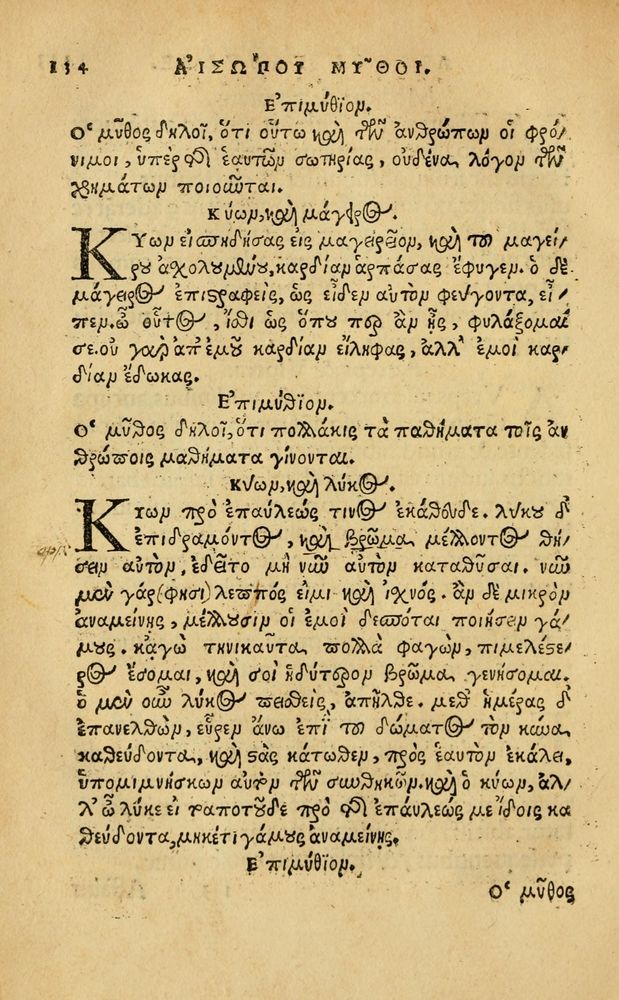 134 ΑἸΣΩΠΟΥ ΜΥ͂ΘΟΙ.
Ἐπιμύθιον.
Ὁ μῦθος δηλοῖ, ὅτι οὕτω καὶ τῶν ἀνθρώπων οἱ φρό/
νιμοι, ὑπὲρ τῆς ἑαυτῶν σωτηρίας, οὐδένα λόγον τῶν
χρημάτων ποιοῦνται.
Κύων, καὶ μάγειρος.
ΚΥων εἰσπηδήσας εἰς μαγειρεῖον, καὶ τοῦ μαγεί/
ρου ἀχολουμένου, καρδίαν ἁρπάσας ἔφυγεν. ὁ δὲ
μάγειρος ἐπιστραφεὶς, ὡς εἶδεν αὐτὸν φεύγοντα, εἶ/
πεν. ὦ οὗτος, ἴσθι ὡς ὅπου περ ἂν ᾖς, φυλάξομαί
σε. οὐ γὰρ ἀπ' ἐμοῦ καρδίαν εἴληφας, ἀλλ' ἐμοὶ καρ/
δίαν ἔδωκας.
Ἐπιμύθιον.
Ὁ μῦθος δηλοῖ, ὅτι πολλάκις τὰ παθήματα τοῖς ἀν
θρώποις μαθήματα γίνονται.
Κύων, καὶ λύκος.
ΚΥων πρὸ ἐπαύλεώς τινος ἐκάθευδε. λύκου δ'
ἐπιδραμόντος, καὶ βρῶμα μέλλοντος θή/
σειν αὐτὸν, ἐδεῖτο μὴ νῦν αὐτὸν καταθῦσαι. νῦν
μὲν γάρ (φησι) λεπτός εἰμι καὶ ἰχνός. ἂν δὲ μικρὸν
ἀναμείνης, μέλλουσιν οἱ ἐμοὶ δεσπόται ποιήσειν γά/
μους. κἀγὼ τηνικαῦτα πολλὰ φαγὼν, πιμελέστε/
ρος ἔσομαι, καὶ σοὶ ἡδύτερον βρῶμα γενήσομαι.
ὁ μὲν οὖν λύκος πεισθεὶς, ἀπῆλθε. μεθ' ἡμέρας δ'
ἐπανελθὼν, εὗρεν ἄνω ἐπὶ τοῦ δώματος τὸν κύνα
καθεύδοντα, καὶ στὰς κάτωθεν, πρὸς ἑαυτὸν ἐκάλει,
ὑπομιμνήσκων αὐτὸν τῶν συνθηκῶν. καὶ ὁ κύων, ἀλ/
λ' ὦ λύκε εἰ τὸ ἀπὸ τοῦδε πρὸ τῆς ἐπαύλεώς με ἴδοις κα
θεύδοντα, μηκέτι γάμους ἀναμείνης.
Ἐπιμύθιον.
Ὁ μῦθος